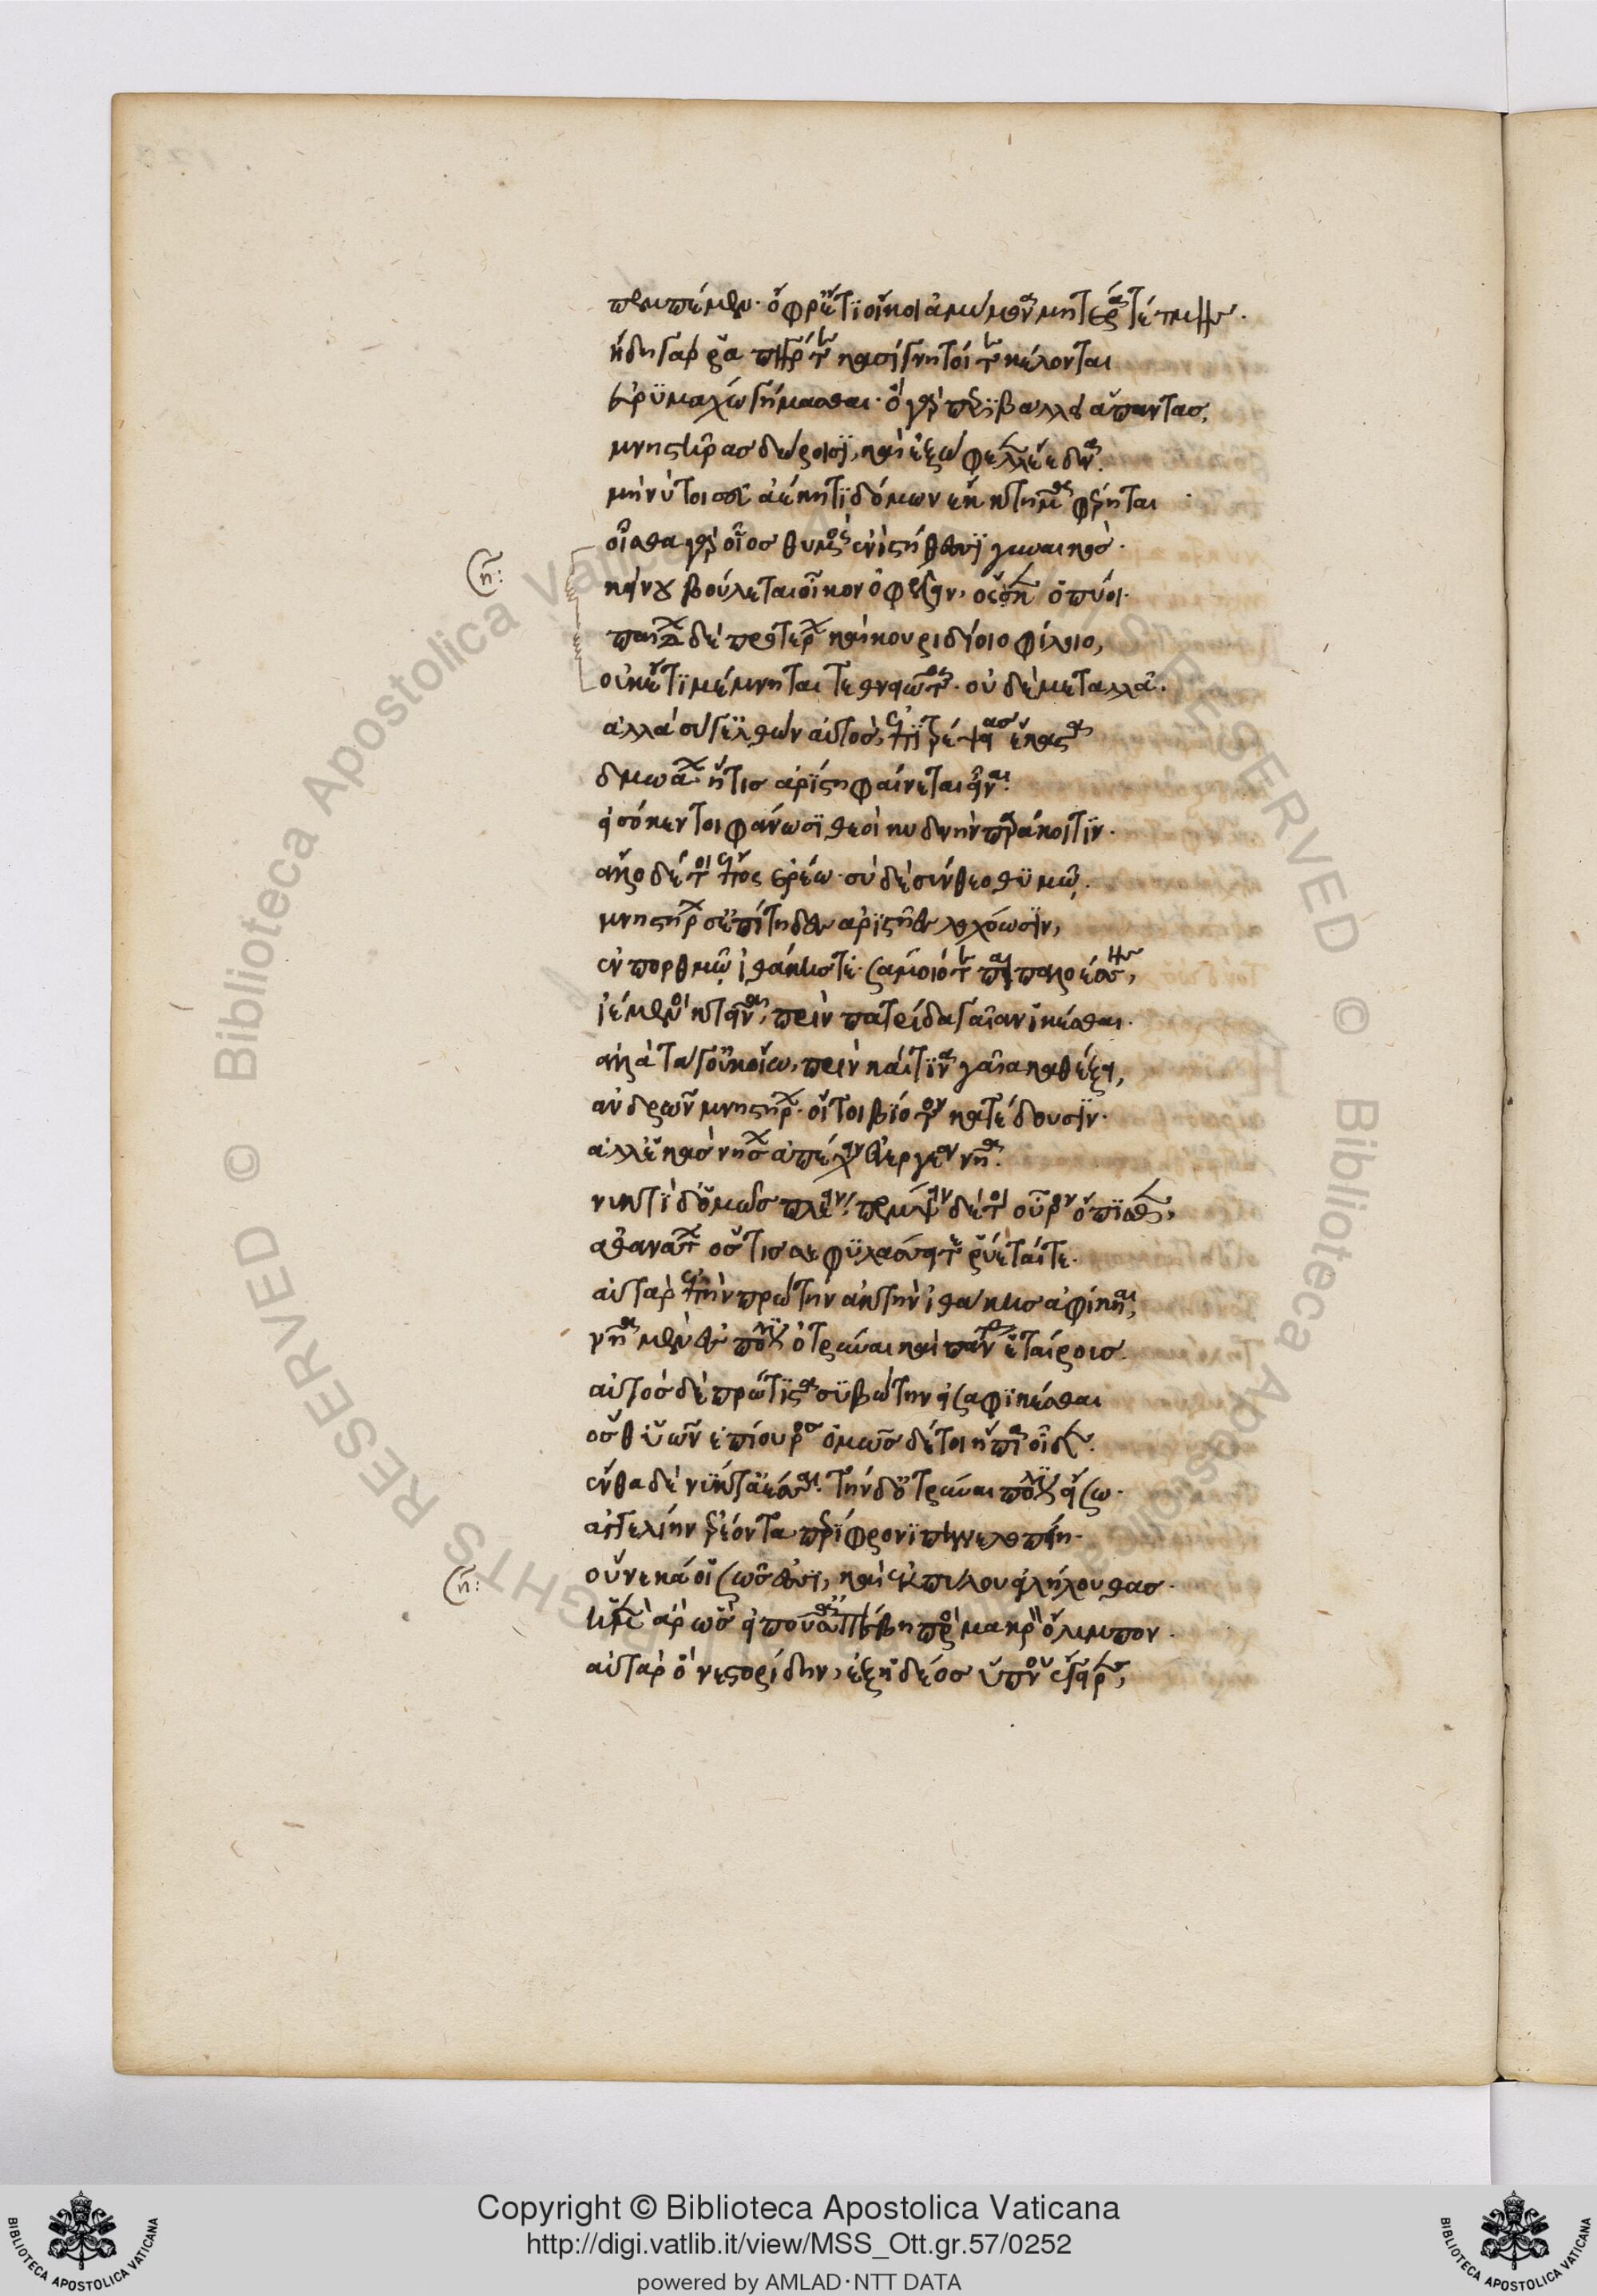 πεμπέμεν· ὄφρ' ἔτι οἴκοι ἀμύμονα μητέρα τέτμης.
ἤδη γάρ ῥα πατήρ τε κασίγνητοί τε κέλονται
εὐρυμάχω γήμασθαι· ὁ γὰρ περιβάλλει ἅπαντας,
μνηστῆρας δώροισι, καὶ ἐξώφελλεν ἔεδνα.
μή νύ τοι σεῦ ἀέκητι δόμων ἐκ κτῆμα φέρηται
οἶσθα γὰρ οἷος θυμὸς ἐνὶ στήθεσσι γυναικός.
κείνου βούλεται οἶκον ὀφέλλειν, ὅς κεν ὀπύοι.
παίδων δὲ προτέρων καὶ κουριδίοιο φίλοιο,
οὐκέτι μέμνηται τεθνειῶτος. οὐδὲ μεταλλᾶ.
ἀλλὰ σύ γ' ἐλθὼν αὐτὸς ἐπιτρέψειας ἕκαστα
δμωάων ἥτις ἀρίστη φαίνεται εἶναι.
εἰσόκεν τοι φάνωσι θεοὶ κυδνὴν παράκοιτιν.
ἄλλο δέ τοι ἔπος ἐρέω. σὺ δὲ σύνθεο θυμῶ.
μνηστήρων σ' ἐπίτηδες ἀριστῆες λοχόωσιν,
ἐν πορθμῶ ἰθάκης τε. σάμοιό τε παιπαλοέσσης,
ἱέμενοι κτεῖναι, πρὶν πατρίδα γαῖαν ἱκέσθαι.
ἀλλὰ τά γ' οὐκ οἴω, πρὶν καί τινα γαῖα καθέξει,
ἀνδρῶν μνηστήρων. οἵ τοι βίοτον κατέδουσιν.
ἀλλ' ἑκὰς νήσων ἀπέχειν εὐεργέα νῆα.
νυκτὶ δ' ὁμῶς πλέειν. πέμψειν δέ τοι οὖρον ὄπισθεν,
ἀθανάτων ὅστις σε φυλάσσει τε ῥύεταί τε.
αὐτὰρ ἐπὴν πρώτην ἀκτὴν ἰθάκης ἀφίκηαι,
νῆα μὲν ἐς πόλιν ὀτρύναι καὶ πάντας ἑταίροις.
αὐτὸς δὲ πρώτιστα συβώτην εἰσαφικέσθαι
ὅς θ' ὑῶν ἐπίουρος ὁμῶς δέ τοι ἤπια οἶδεν.
ἔνθα δὲ νύκτ' ἀέσαι. τὴν δ' ὀτρύναι πόλιν εἴσω.
ἀγγελίην ἐρέοντα περίφρονι πηνελοπείη.
οὕνεκά οἱ σῶς ἐσσι, καὶ ἐκ πύλου εἰλήλουθας.
ἡ μὲν ἄρ' ὣς εἰποῦσ' ἀπέβη πρὸς μακρὸν ὄλυμπον.
αὐτὰρ ὁ νεστορίδην, ἐξ ἡδέος ὕπνου ἔγειρεν,
Copyright © Biblioteca Apostolica Vaticana
http://digi.vatlib.it/view/MSS_Ott.gr.57/0252
powered by AMLAD·NTT DATA